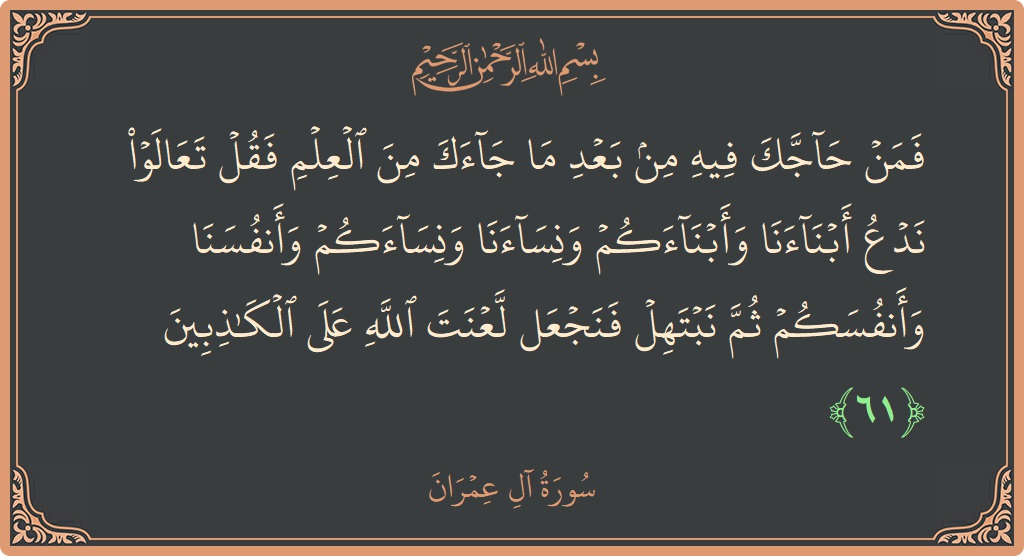 بِسْمِ اللَّهِ الرَّحْمَٰنِ الرَّحِيمِ
فَمَنْ حَآجَّكَ فِيهِ مِنۢ بَعْدِ مَا جَآءَكَ مِنَ ٱلْعِلْمِ فَقُلْ تَعَالَوْا۟
نَدْعُ أَبْنَآءَنَا وَأَبْنَآءَكُمْ وَنِسَآءَنَا وَنِسَآءَكُمْ وَأَنفُسَنَا
وَأَنفُسَكُمْ ثُمَّ نَبْتَهِلْ فَنَجْعَل لَّعْنَتَ ٱللَّهِ عَلَى ٱلْكَـٰذِبِينَ
﴿٦١﴾
سُورَةُ آلِ عِمْرَانَ